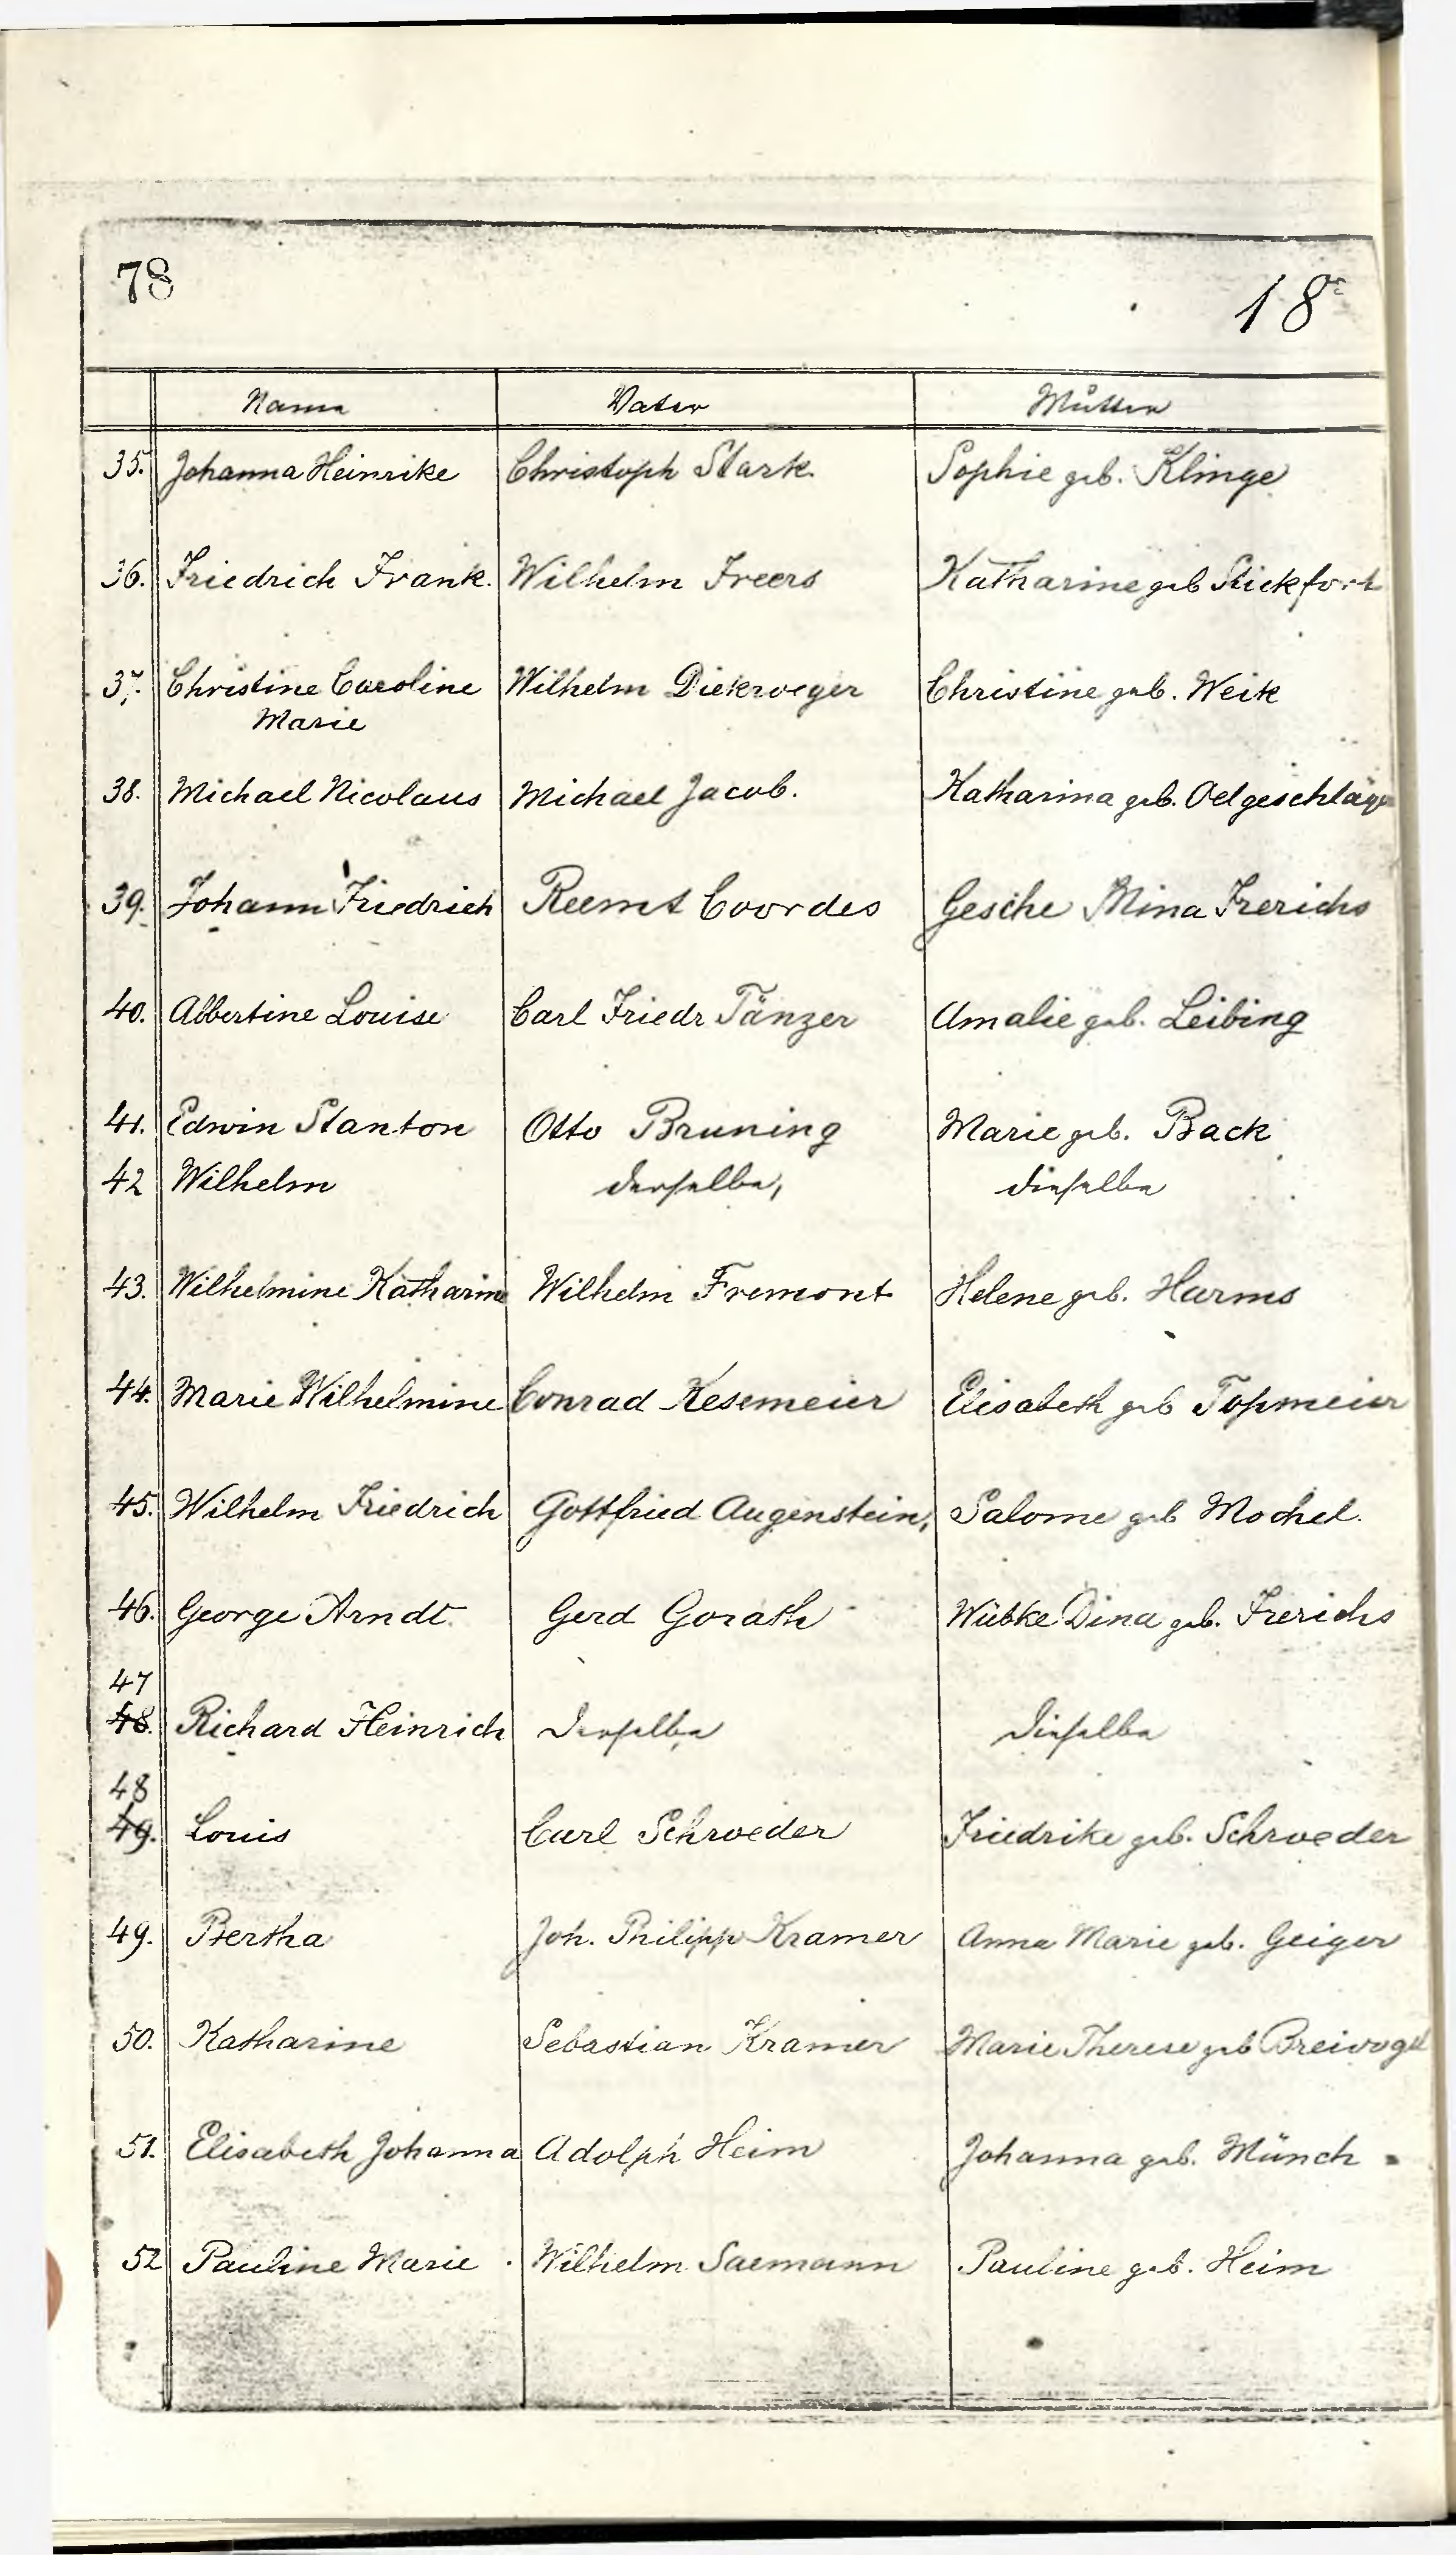 78
18
Name Vater Mutter
35. Johanna Heinrike Christoph Stark. Sophie geb. Klinge
36. Friedrich Frank. Wilhelm Freers Katharine geb Stickfort
37. Christine Caroline Wilhelm Diekroeger Christine geb. Weik
Marie
38. Michael Nicolaus Michael Jacob. Katharina geb. Oelgeschläger
39. Johann Friedrich Reemt Coordes Gesche Mina Frerichs
40. Albertine Louise Carl Friedr Tänzer Amalie geb. Leibing
41. Edwin Stanton Otto Bruning Marie geb. Back
42 Wilhelm derselbe, dieselbe
43. Wilhelmine Katharine Wilhelm Fremont Helene geb. Harms
44. Marie Wilhelmine Conrad Kesemeier Elisabeth geb Topmeier
45. Wilhelm Friedrich Gottfried Augenstein, Salome geb Mochel.
46. George Arndt. Gerd Gorath Wübke Dina geb. Frerichs
47
48. Richard Heinrich Derselbe Dieselbe
48
49. Louis Carl Schroeder Friedrike geb. Schroeder
49. Bertha Joh. Philipp Kramer Anna Marie geb. Geiger
50. Katharine Sebastian Kramer Marie Therese geb Breivogel
51. Elisabeth Johanna Adolph Heim Johanna geb. Münch
52 Pauline Marie Wilhelm Saemann Pauline geb. Heim